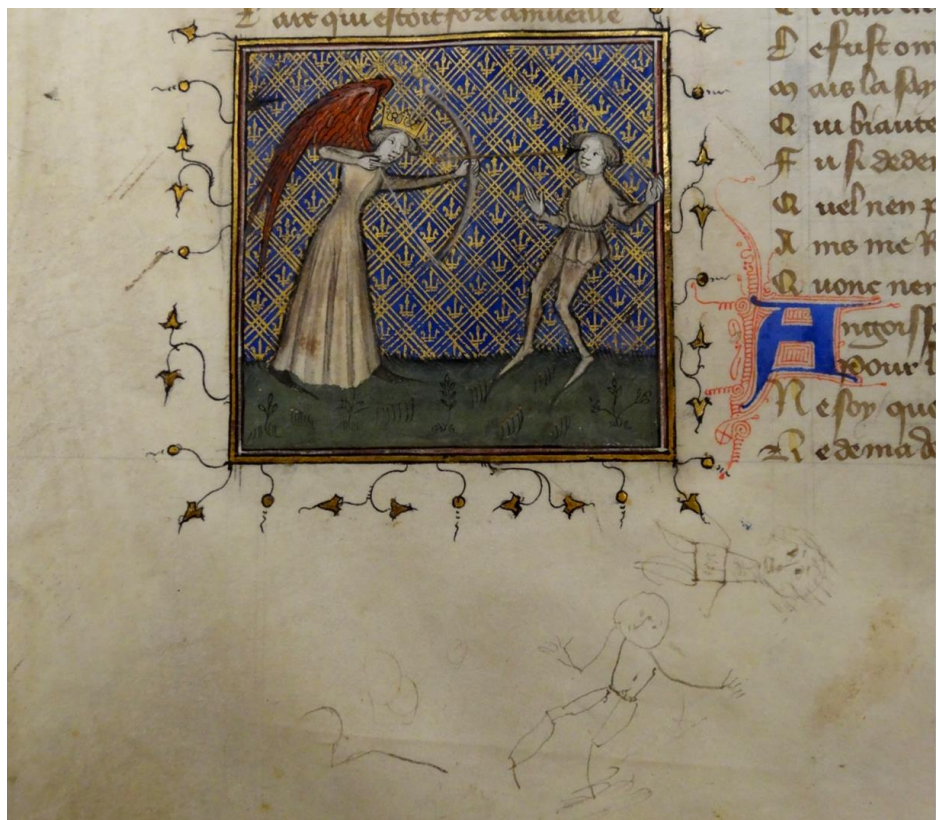 L arc qui estoit fort amueille
D e fust om
M ais la say
Q ui biaute
F u si deden
Q uel nen p
A ins me R
Q uonc nen
A ngoiss
pour l
N e soy que
R e de ma